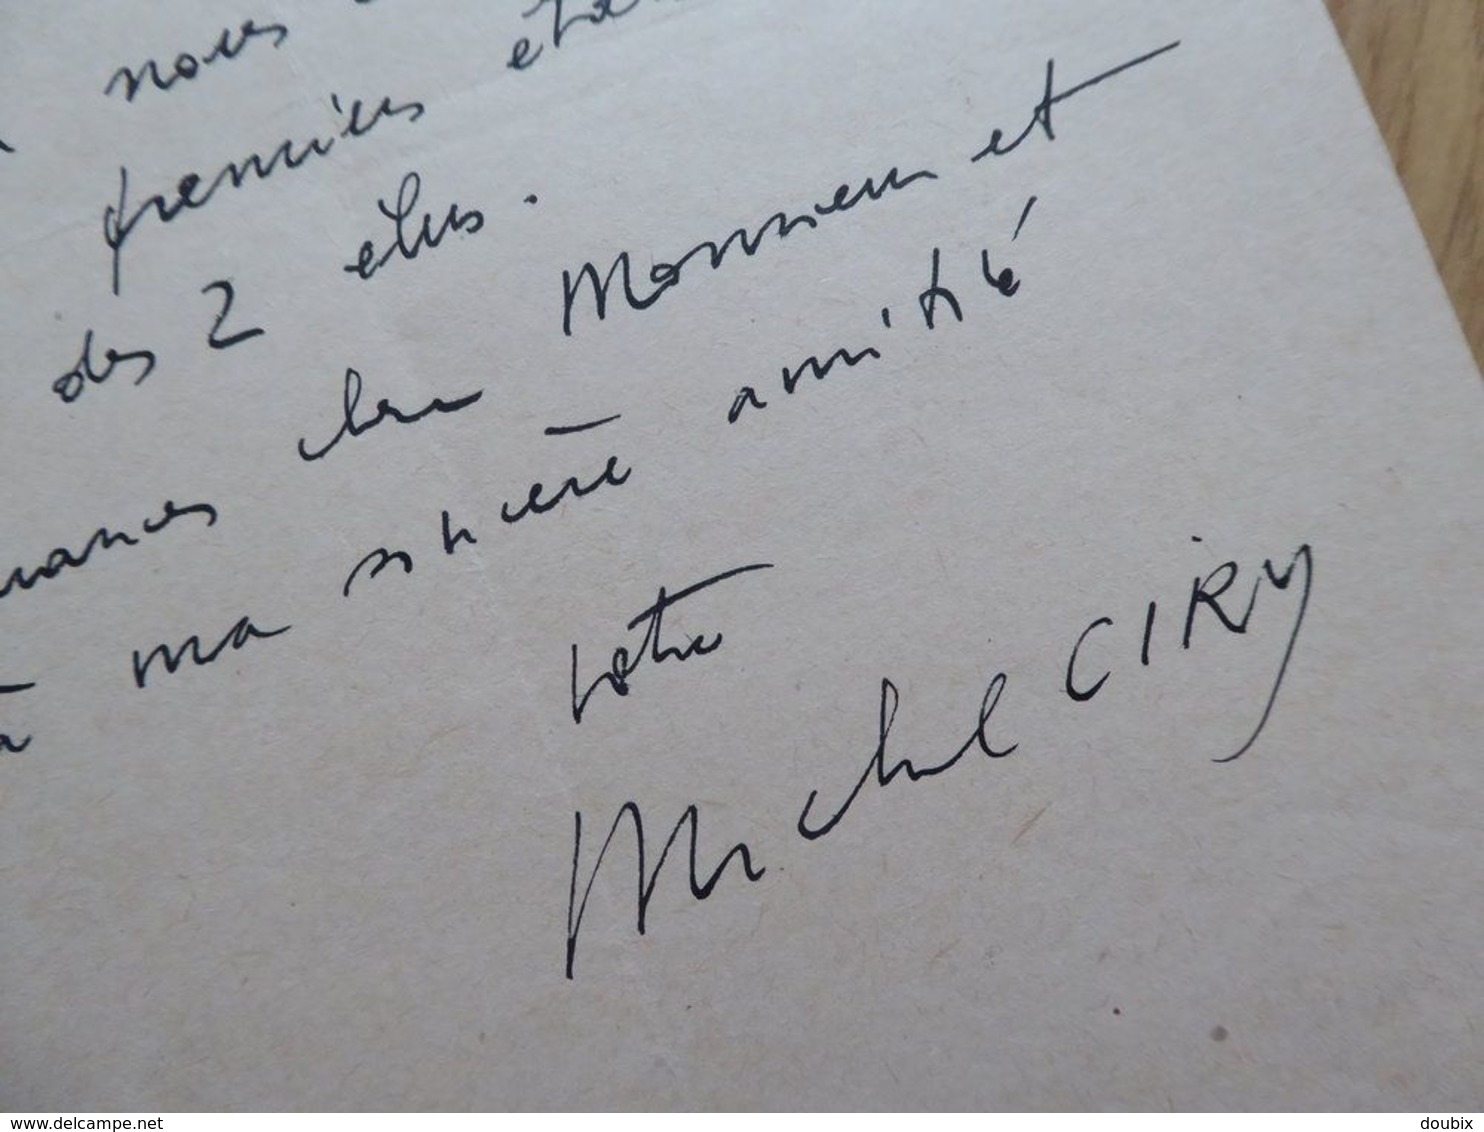 nous
premiers
des 2 élus.
cher Monsieur et
à ma sincère amitié
votre
Michel CIRY
www.delcampe.net
doubix